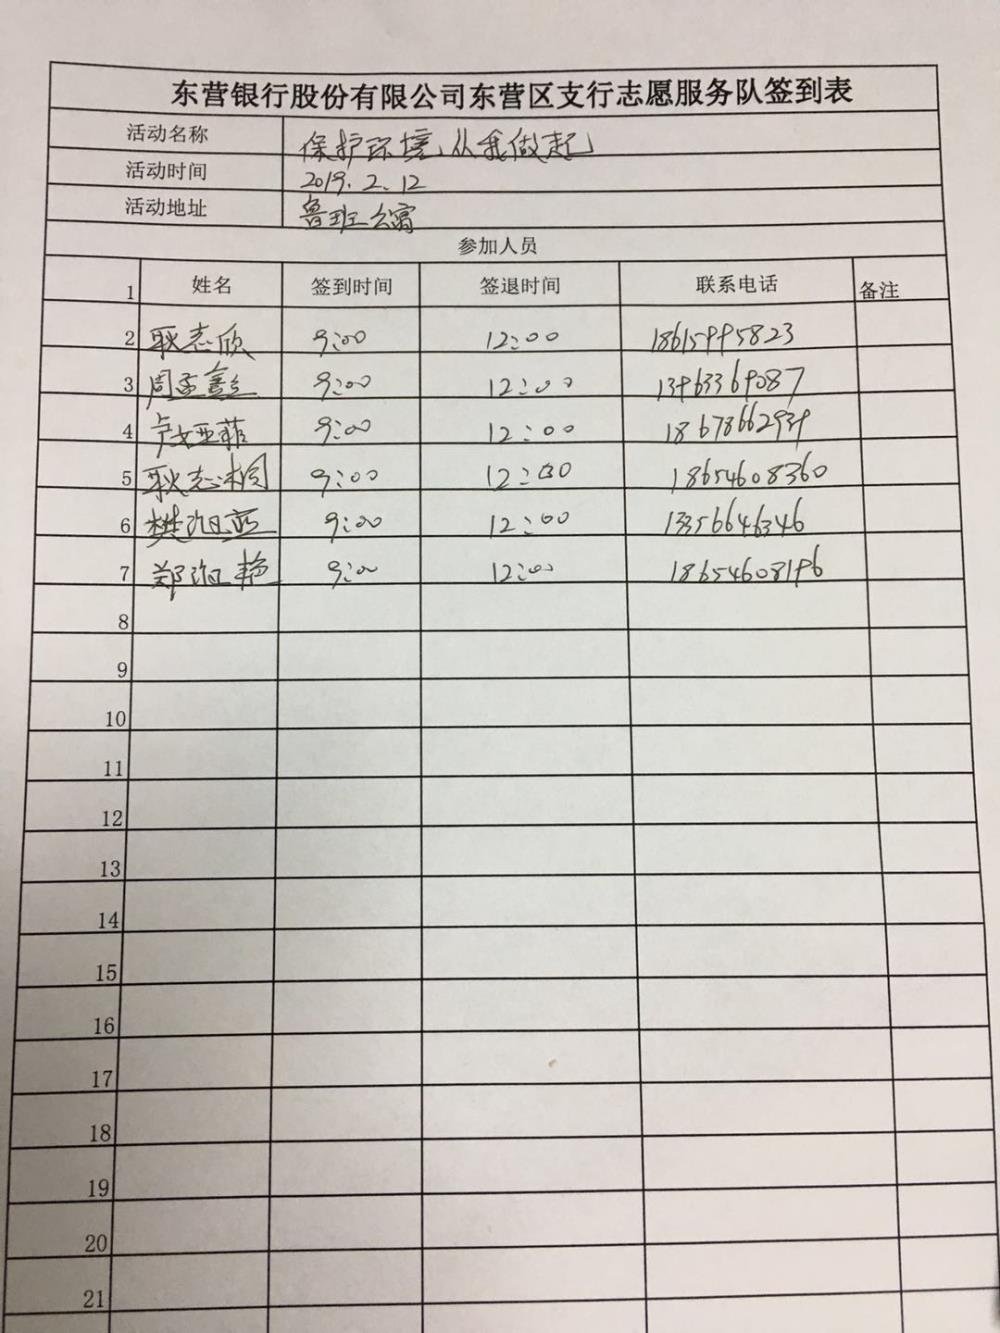 东营银行股份有限公司东营区支行志愿服务队签到表
活动名称 保护环境、从我做起
活动时间 2019.2.12
活动地址 鲁班公寓
参加人员
1 姓名 签到时间 签退时间 联系电话 备注
2 耿志欣 9:00 12:00 18615995823
3 周孟鑫 9:00 12:00 13963369087
4 卢亚菲 9:00 12:00 18678662939
5 耿志桐 9:00 12:00 18654608360
6 樊旭蓝 9:00 12:00 13356646346
7 郑江艳 9:00 12:00 18654608196
8
9
10
11
12
13
14
15
16
17
18
19
20
21